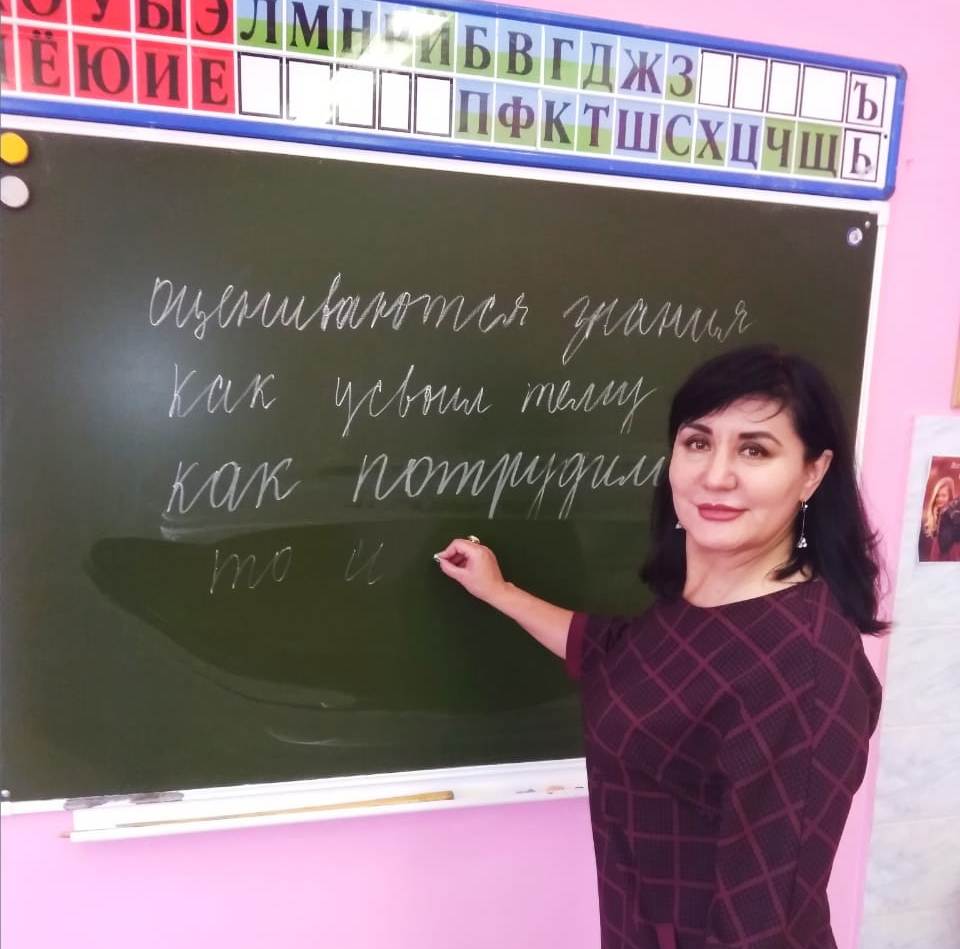 О У Ы Э Л М Н Р Й Б В Г Д Ж З Ъ
Ё Ю И Е П Ф К Т Ш С Х Ц Ч Щ Ь
оцениваются знания
как усвоил тему
как потрудил
то и